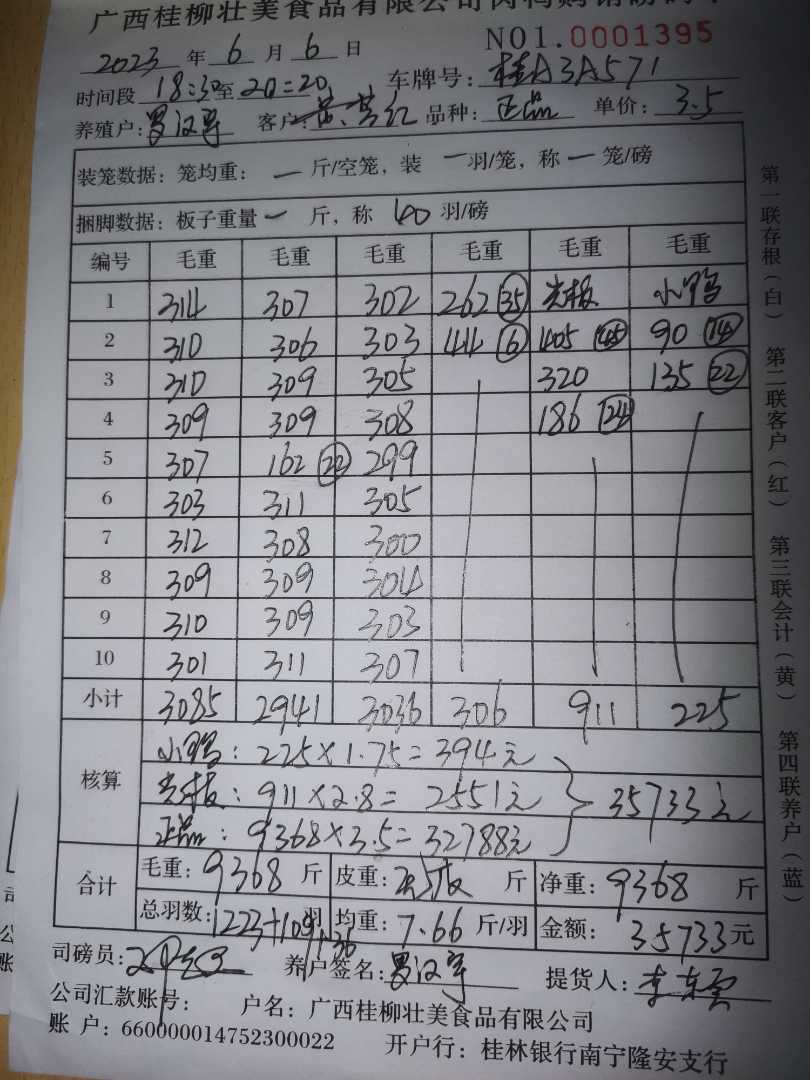 广西桂柳壮美食品有限公司肉鸭购销磅码单
NO1.0001395
2023 年 6 月 6 日
时间段 18:30 至 20:20 车牌号: 桂A3A571
养殖户: 罗汉宇 客户: 品种: 正品 单价: 3.5
装笼数据: 笼均重: 一 斤/空笼, 装 一 羽/笼, 称 一 笼/磅
捆脚数据: 板子重量 一 斤, 称 40 羽/磅
编号 毛重 毛重 毛重 毛重 毛重 毛重
1 314 307 302 262 (35) 光板 小鸭
2 310 306 303 44 (6) 405 (45) 90 (14)
3 310 309 305 320 135 (22)
4 309 309 308 186 (24)
5 307 162 (22) 299
6 303 311 305
7 312 308 300
8 309 309 304
9 310 309 303
10 301 311 307
小计 3085 2941 3036 306 911 225
核算 小鸭: 225×1.75=394元
光板: 911×2.8= 2551元 35733元
正品: 9368×3.5=32788元
合计 毛重: 9368 斤 皮重: 斤 净重: 9368 斤
总羽数: 1223+109 羽 +36 均重: 7.66 斤/羽 金额: 35733元
司磅员: 养户签名: 罗汉宇 提货人:
公司汇款账号: 户名: 广西桂柳壮美食品有限公司
账 户: 660000014752300022 开户行: 桂林银行南宁隆安支行
第一联存根(白) 第二联客户(红) 第三联会计(黄) 第四联养户(蓝)